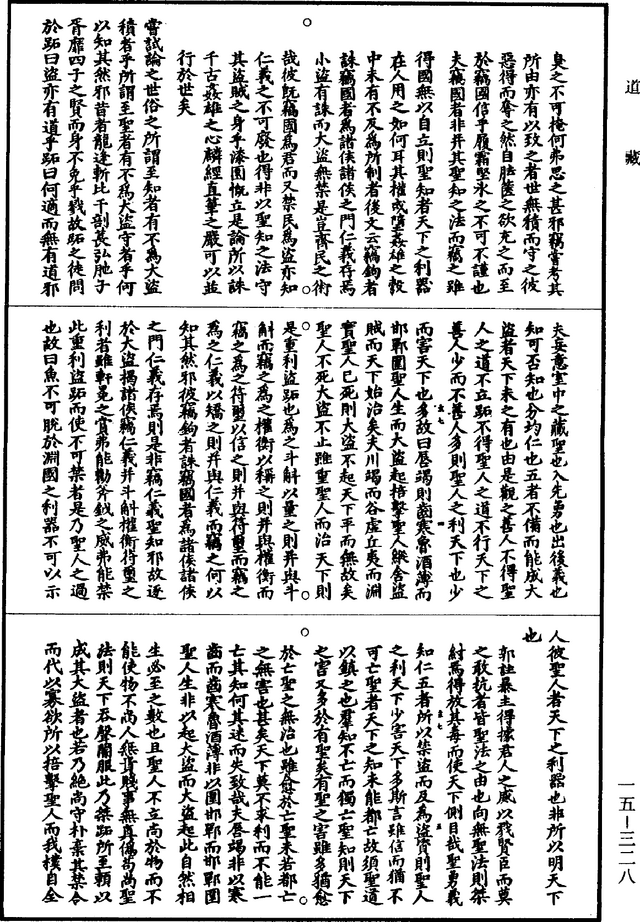 道藏
臭之不可掩何弗思之甚邪竊嘗考其
所由亦有以致之者世無積而守之彼
惡得而奪之然自胠篋之欲充之而至
於竊國信乎履霜堅冰之不可不謹也
夫竊國者非并其聖知之法而竊之雖
得國無以自立則聖知者天下之利器
在人用之如何耳其權或墮姦雄之彀
中未有不反為所制者後文云竊鉤者
誅竊國者為諸侯諸侯之門仁義存焉
小盜有誅而大盜無禁是豈齊民之術
哉彼既竊國為君而又禁民為盜亦知
仁義之不可廢也得非以聖知之法守
其盜賊之身乎漆園慨立是論所以誅
千古姦雄之心麟經直筆之嚴可以並
行於世矣
嘗試論之世俗之所謂至知者有不為大盜
積者乎所謂至聖者有不為大盜守者乎何
以知其然邪昔者龍逢斬比干剖萇弘胣子
胥靡四子之賢而身不免乎戮故跖之徒問
於跖曰盜亦有道乎跖曰何適而無有道邪
夫妄意室中之藏聖也入先勇也出後義也
知可否知也分均仁也五者不備而能成大
盜者天下未之有也由是觀之善人不得聖
人之道不立跖不得聖人之道不行天下之
善人少而不善人多則聖人之利天下也少
而害天下也多故曰唇竭則齒寒魯酒薄而
邯鄲圍聖人生而大盜起掊擊聖人縱舍盜
賊而天下始治矣夫川竭而谷虛丘夷而淵
實聖人已死則大盜不起天下平而無故矣
聖人不死大盜不止雖重聖人而治天下則
是重利盜跖也為之斗斛以量之則并與斗
斛而竊之為之權衡以稱之則并與權衡而
竊之為之符璽以信之則并與符璽而竊之
為之仁義以矯之則并與仁義而竊之何以
知其然邪彼竊鉤者誅竊國者為諸侯諸侯
之門仁義存焉則是非竊仁義聖知邪故逐
於大盜揭諸侯竊仁義并斗斛權衡符璽之
利者雖軒冕之賞弗能勸斧鉞之威弗能禁
此重利盜跖而使不可禁者是乃聖人之過
也故曰魚不可脫於淵國之利器不可以示
人彼聖人者天下之利器也非所以明天下
也
郭註暴主得據君人之威以戮賢臣而莫
之敢抗者皆聖法之由也向無聖法則桀
紂焉得放其毒而使天下側目哉聖勇義
知仁五者所以禁盜而反為盜資則聖人
之利天下少害天下多斯言雖信而猶不
可亡聖者天下之知未能都亡故須聖道
以鎮之也羣知不亡而獨亡聖知則天下
之害又多於有聖矣有聖之害雖多猶愈
於亡聖之無治也雖愈於亡聖未若都亡
之無害也甚矣天下莫不求利而不能一
亡其知何其迷而失致哉夫唇竭非以寒
齒而齒寒魯酒薄非以圍邯鄲而邯鄲圍
聖人生非以起大盜而大盜起此自然相
生必至之數也且聖人不立尚於物而不
能使物不尚人無貴賤事無真偽苟尚聖
法則天下吞聲闇服此乃桀跖所至賴以
成其大盜者也若乃絕尚守朴棄其禁令
而代以寡欲所以掊擊聖人而我樸自全
一五－三二八